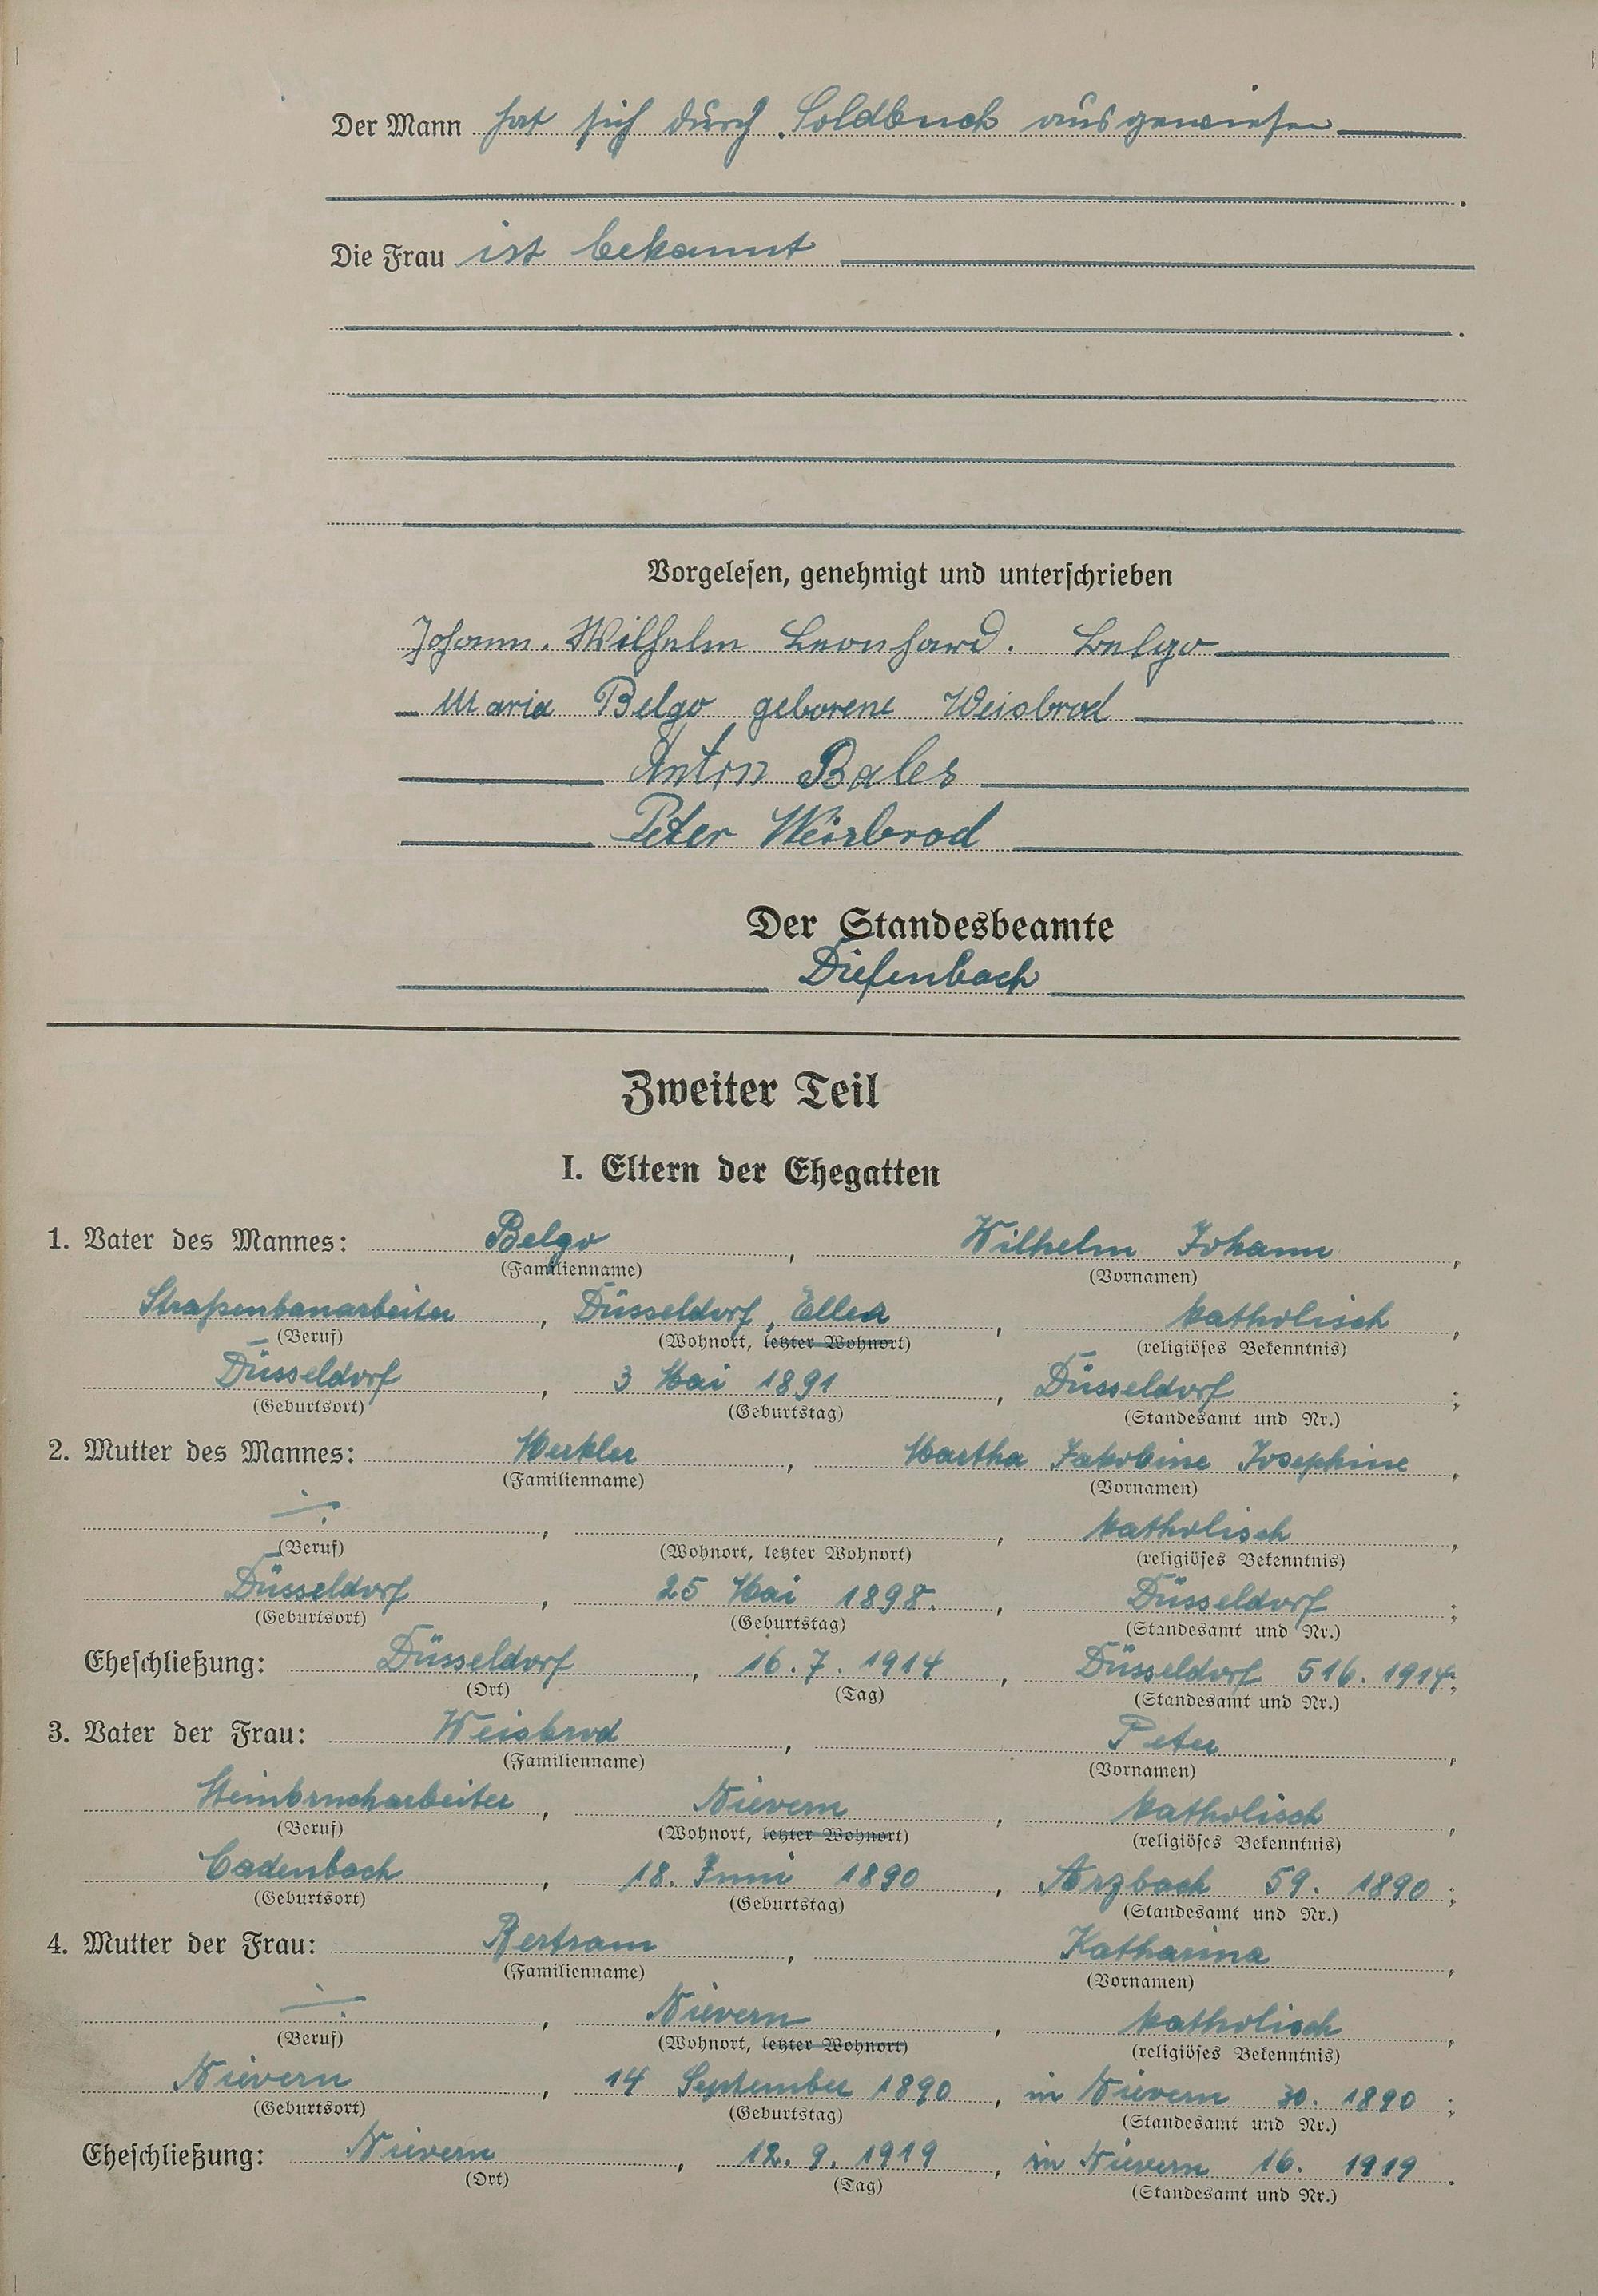 Der Mann hat sich durch Soldbuch ausgewiesen
.
Die Frau ist bekannt
.
Vorgelesen, genehmigt und unterschrieben
Johann. Wilhelm Leonhard. Belgo
Maria Belgo geborene Weisbrod
Anton Bales
Peter Weisbrod
Der Standesbeamte
Diefenbach
Zweiter Teil
I. Eltern der Ehegatten
1. Vater des Mannes: Belgo, Wilhelm Johann,
(Familienname) (Vornamen)
Straßenbauarbeiter, Düsseldorf, Eller, katholisch,
(Beruf) (Wohnort, letzter Wohnort) (religiöses Bekenntnis)
Düsseldorf, 3 Mai 1891, Düsseldorf;
(Geburtsort) (Geburtstag) (Standesamt und Nr.)
2. Mutter des Mannes: Merkler, Martha Jakobine Josephine,
(Familienname) (Vornamen)
, , katholisch,
(Beruf) (Wohnort, letzter Wohnort) (religiöses Bekenntnis)
Düsseldorf, 25 Mai 1898., Düsseldorf;
(Geburtsort) (Geburtstag) (Standesamt und Nr.)
Eheschließung: Düsseldorf, 16.7.1914, Düsseldorf 516. 1914;
(Ort) (Tag) (Standesamt und Nr.)
3. Vater der Frau: Weisbrod, Peter,
(Familienname) (Vornamen)
Steinbrucharbeiter, Nievern, katholisch,
(Beruf) (Wohnort, letzter Wohnort) (religiöses Bekenntnis)
Cadenbach, 18. Juni 1890, Arzbach 59. 1890;
(Geburtsort) (Geburtstag) (Standesamt und Nr.)
4. Mutter der Frau: Bertram, Katharina,
(Familienname) (Vornamen)
, Nievern, katholisch,
(Beruf) (Wohnort, letzter Wohnort) (religiöses Bekenntnis)
Nievern, 14 September 1890, in Nievern 30. 1890;
(Geburtsort) (Geburtstag) (Standesamt und Nr.)
Eheschließung: Nievern, 12.9.1919, in Nievern 16. 1919.
(Ort) (Tag) (Standesamt und Nr.)